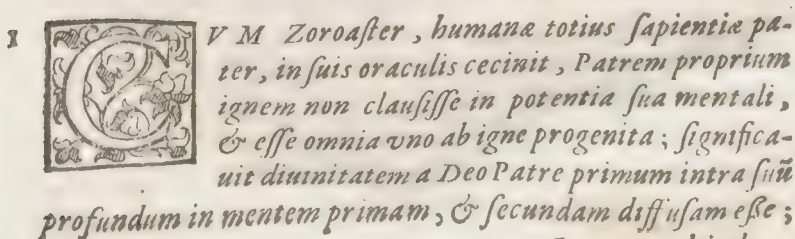 1 CVM Zoroaſter, humanæ totius ſapientiæ pa-
ter, in ſuis oraculis cecinit, Patrem proprium
ignem non clauſiſſe in potentia ſua mentali,
& eſſe omnia vno ab igne progenita; ſignifica-
uit diuinitatem a Deo Patre primum intra ſuū
profundum in mentem primam, & ſecundam diffuſam eſſe;